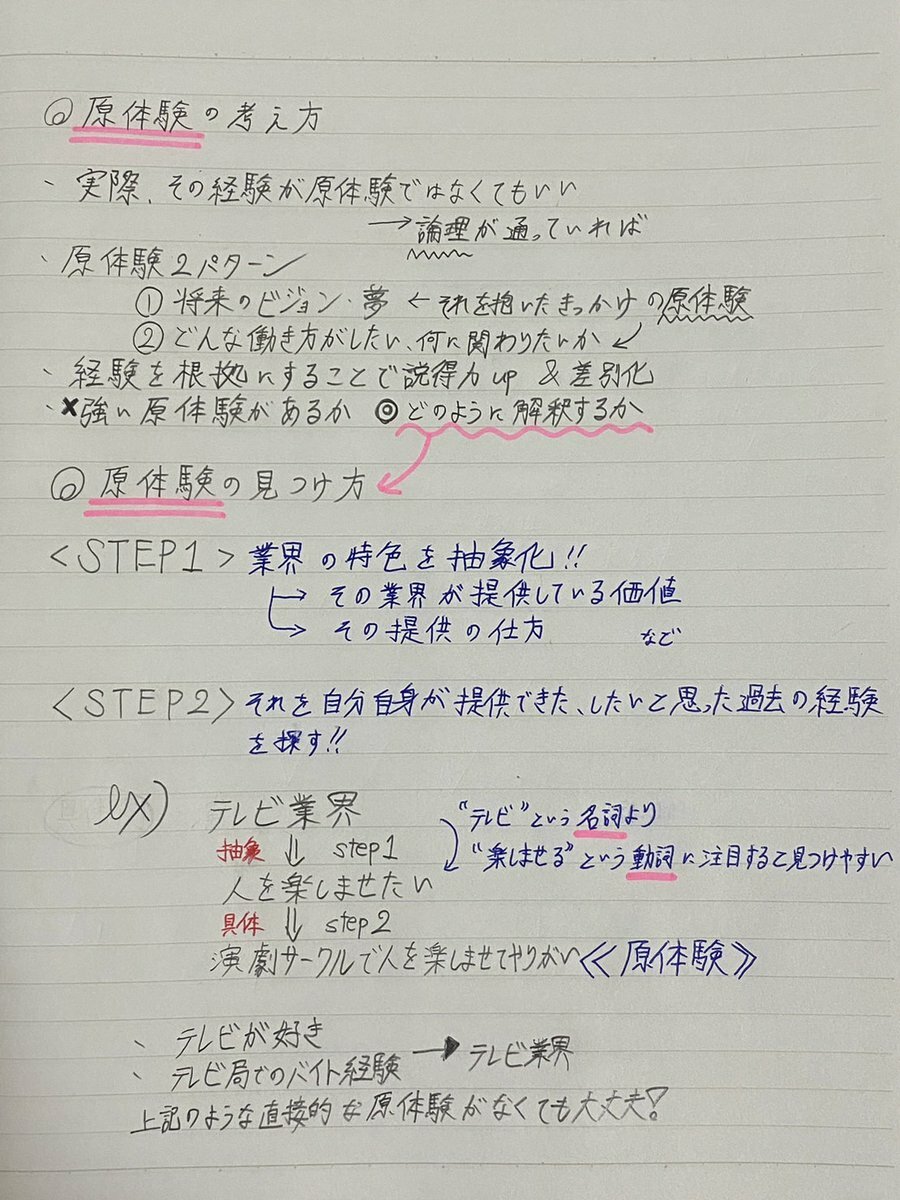 ◎原体験の考え方
、実際、その経験が原体験ではなくてもいい
→論理が通っていれば
、原体験2パターン
①将来のビジョン・夢 ← それを抱いたきっかけの原体験
②どんな働き方がしたい、何に関わりたいか ↙
、経験を根拠にすることで説得力up &差別化
・✖強い原体験があるか ◎どのように解釈するか
◎原体験の見つけ方
<STEP1> 業界の特色を抽象化!!
→ その業界が提供している価値
→ その提供の仕方 など
<STEP2> それを自分自身が提供できた、したいと思った過去の経験
を探す!!
ex) テレビ業界
抽象 ⇓ step1
人を楽しませたい
具体 ⇓ step2
演劇サークルで人を楽しませてやりがい《原体験》
"テレビ"という名詞より
"楽しませる"という動詞に注目すると見つけやすい
、テレビが好き
、テレビ局でのバイト経験 → テレビ業界
上記のような直接的な原体験がなくても大丈夫!